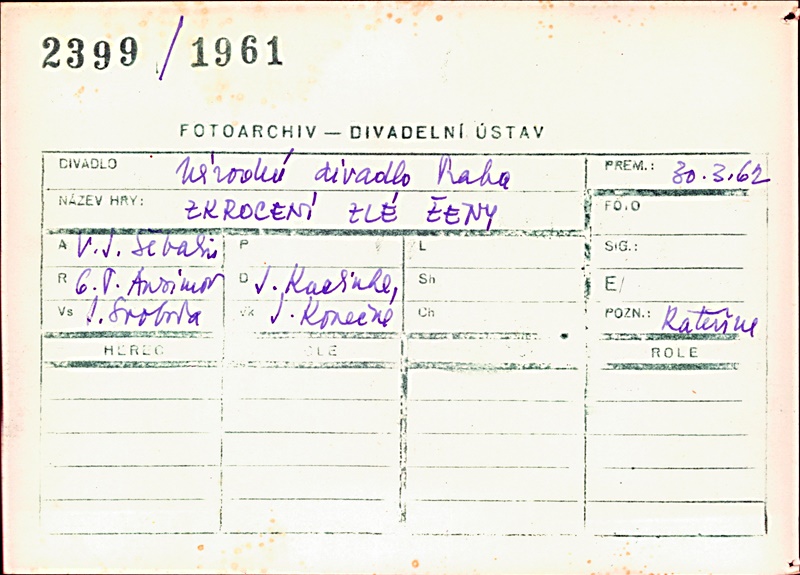 2399/1961
FOTOARCHIV — DIVADELNÍ ÚSTAV
DIVADLO Národní divadlo Praha PREM.: 30.3.62
NÁZEV HRY: ZKROCENÍ ZLÉ ŽENY FOTO
A V. J. Šebalin P L SIG.:
R G. P. Ansimov D J. Kuchinka, Sh E/
Vs J. Svoboda Vk J. Konečná Ch POZN.: Kateřina
HEREC ROLE